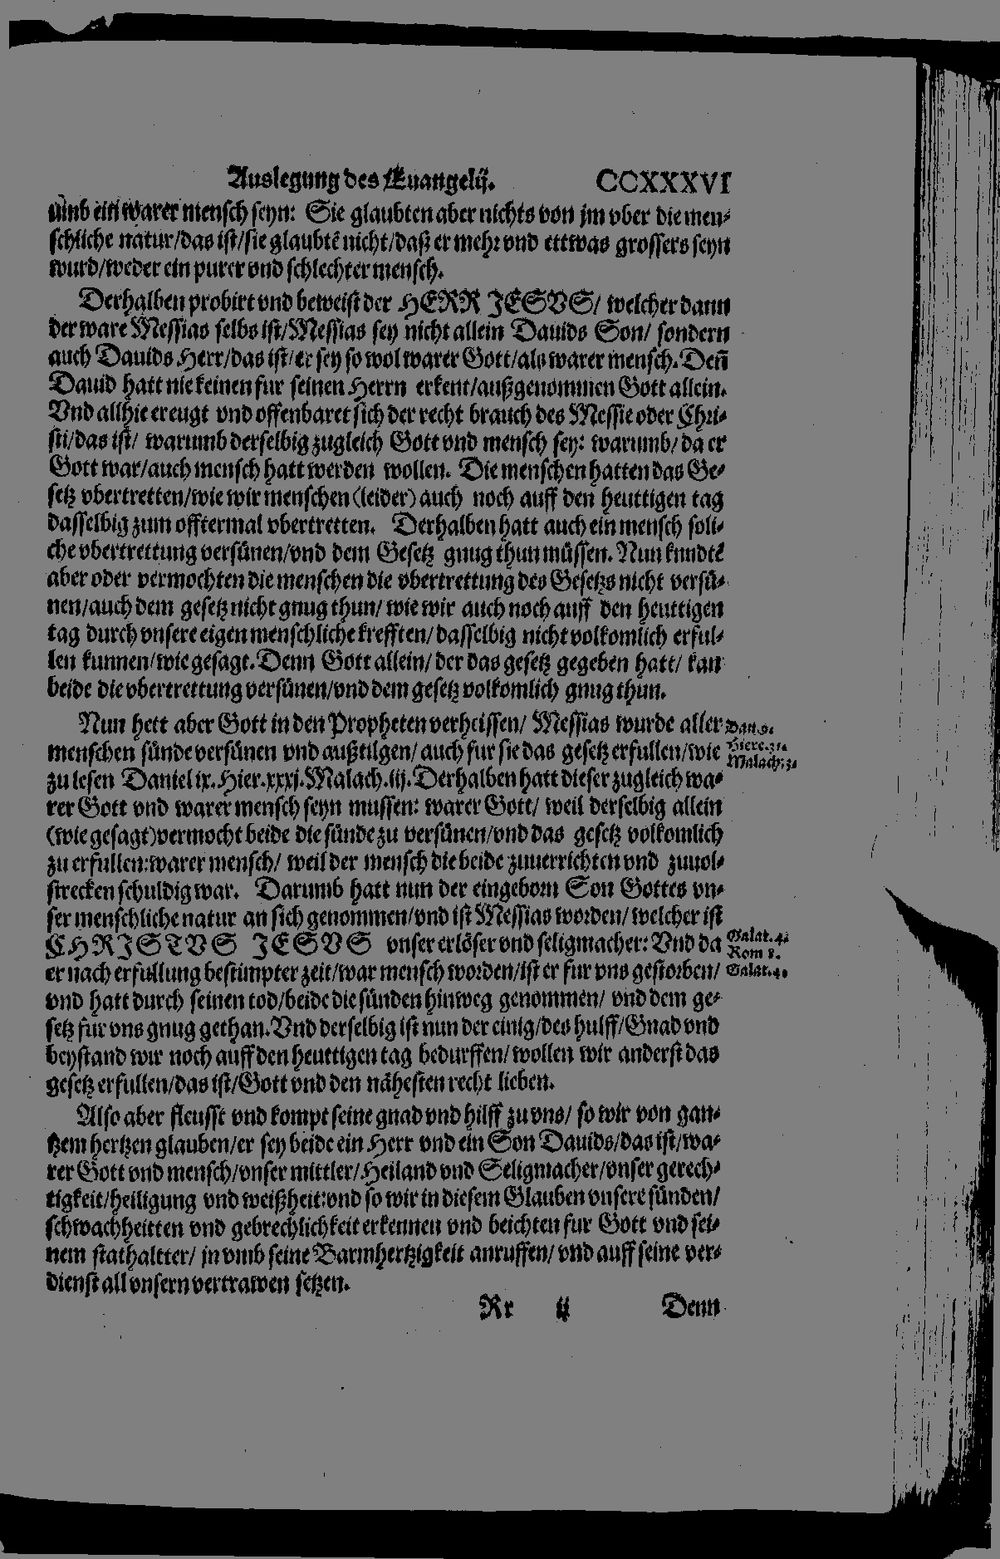 Auslegung des Euangelij. CCXXXVI
umb ein warer mensch seyn: Sie glaubten aber nichts von jm vber die men-
schliche natur/das ist/sie glaubtē nicht/daß er mehr vnd ettwas grossers seyn
wurd/weder ein purer vnd schlechter mensch.
Derhalben probirt vnd beweist der HERR JESVS/ welcher dann
der ware Messias selbs ist/Messias sey nicht allein Dauids Son/ sondern
auch Dauids Herr/das ist/er sey so wol warer Gott/als warer mensch. Deñ
Dauid hatt nie keinen fur seinen Herrn erkent/außgenommen Gott allein.
Vnd allhie ereugt vnd offenbaret sich der recht brauch des Messie oder Chri-
sti/das ist/ warumb derselbig zugleich Gott vnd mensch sey: warumb/ da er
Gott war/auch mensch hatt werden wollen. Die menschen hatten das Ge-
setz vbertretten/wie wir menschen (leider) auch noch auff den heuttigen tag
dasselbig zum offtermal vbertretten. Derhalben hatt auch ein mensch soli-
che vbertrettung versünen/vnd dem Gesetz gnug thun müssen. Nun kundtē
aber oder vermochten die menschen die vbertrettung des Gesetzs nicht versü-
nen/auch dem gesetz nicht gnug thun/ wie wir auch noch auff den heuttigen
tag durch vnsere eigen menschliche krefften/ dasselbig nicht volkomlich erful-
len kunnen/wie gesagt. Denn Gott allein/ der das gesetz gegeben hatt/ kan
beide die vbertrettung versünen/vnd dem gesetz volkomlich gnug thun.
Nun hett aber Gott in den Propheten verheissen/ Messias wurde aller
Dan.9.
menschen sünde versünen vnd außtilgen/ auch fur sie das gesetz erfullen/wie
Hiere.31.
zu lesen Daniel ix. Hier.xxxj. Malach.iij. Derhalben hatt dieser zugleich wa-
Malach:3.
rer Gott vnd warer mensch seyn mussen: warer Gott/ weil derselbig allein
(wie gesagt)vermocht beide die sünde zu versünen/vnd das gesetz volkomlich
zu erfullen:warer mensch/ weil der mensch die beide zuuerrichten vnd zuuol-
strecken schuldig war. Darumb hatt nun der eingeborn Son Gottes vn-
ser menschliche natur an sich genommen/vnd ist Messias worden/ welcher ist
CHRISTVS JESVS vnser erlöser vnd seligmacher: Vnd da
Galat.4.
Rom 8.
er nach erfullung bestimpter zeit/war mensch worden/ist er fur vns gestorben/
Galat.4.
vnd hatt durch seinen tod/beide die sünden hinweg genommen/ vnd dem ge-
setz fur vns gnug gethan. Vnd derselbig ist nun der einig/des hulff/Gnad vnd
beystand wir noch auff den heuttigen tag bedurffen/ wollen wir anderst das
gesetz erfullen/das ist/Gott vnd den nähesten recht lieben.
Also aber fleusst vnd kompt seine gnad vnd hilff zu vns/ so wir von gan-
tzem hertzen glauben/er sey beide ein Herr vnd ein Son Dauids/das ist/wa-
rer Gott vnd mensch/vnser mittler/Heiland vnd Seligmacher/vnser gerech-
tigkeit/heiligung vnd weißheit:vnd so wir in diesem Glauben vnsere sünden/
schwachheitten vnd gebrechlichkeit erkennen vnd beichten fur Gott vnd sei-
nem stathaltter/ jn vmb seine Barmhertzigkeit anruffen/ vnd auff seine ver-
dienst all vnsern vertrawen setzen.
Rr ij Denn